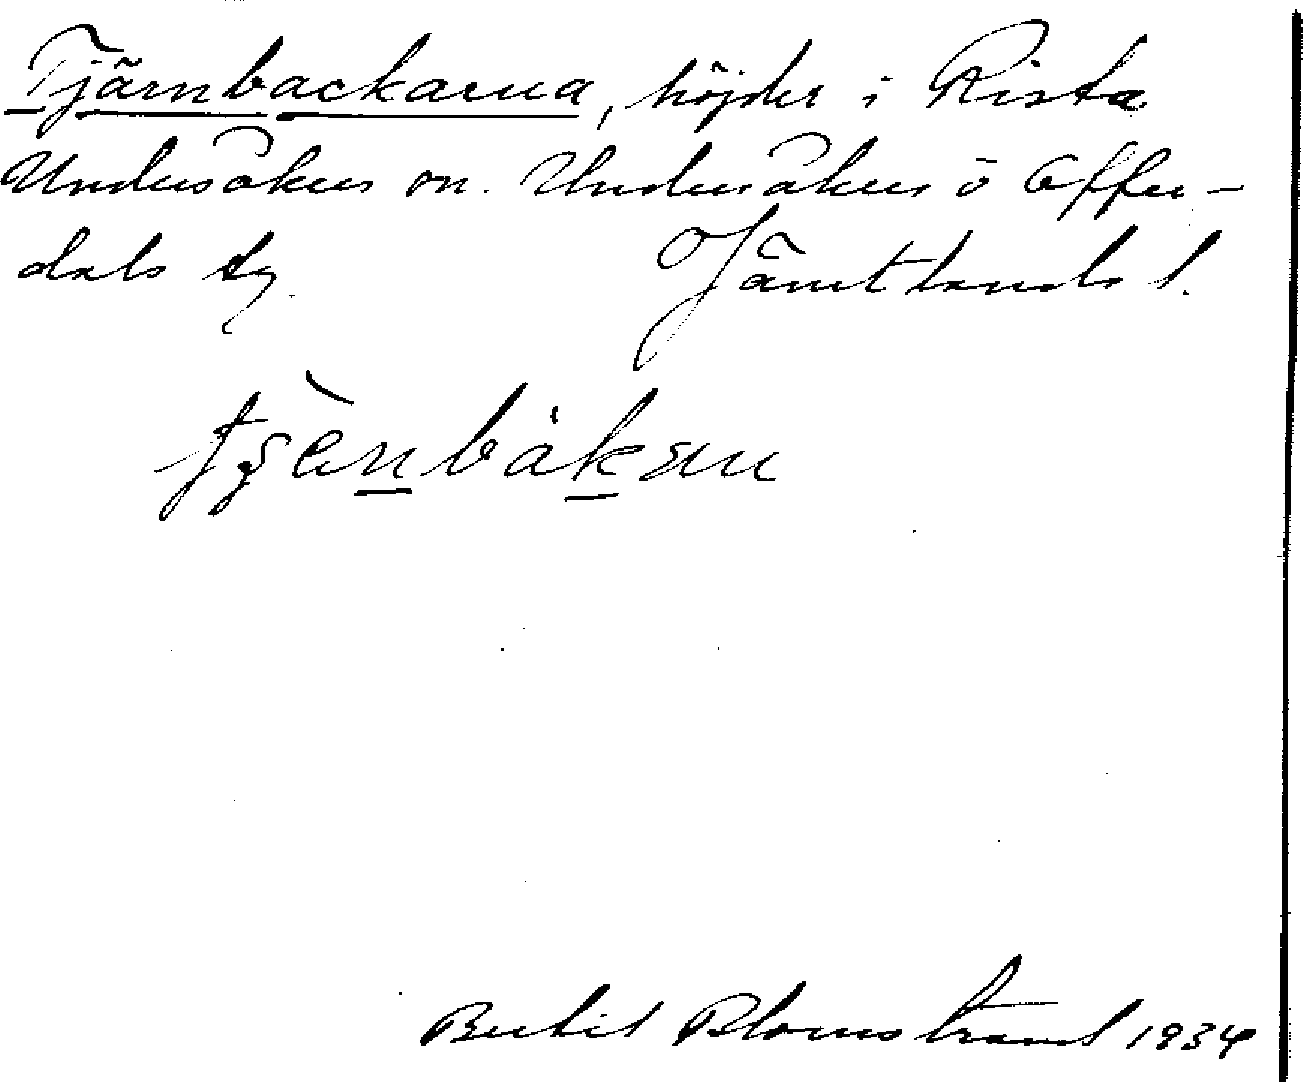 Tjärnbackarna, höjder i Rista
Undersåkers sn. Undersåkers o Offer-
dals tg
Jämtlands l.
Bertil Blomstrand 1934